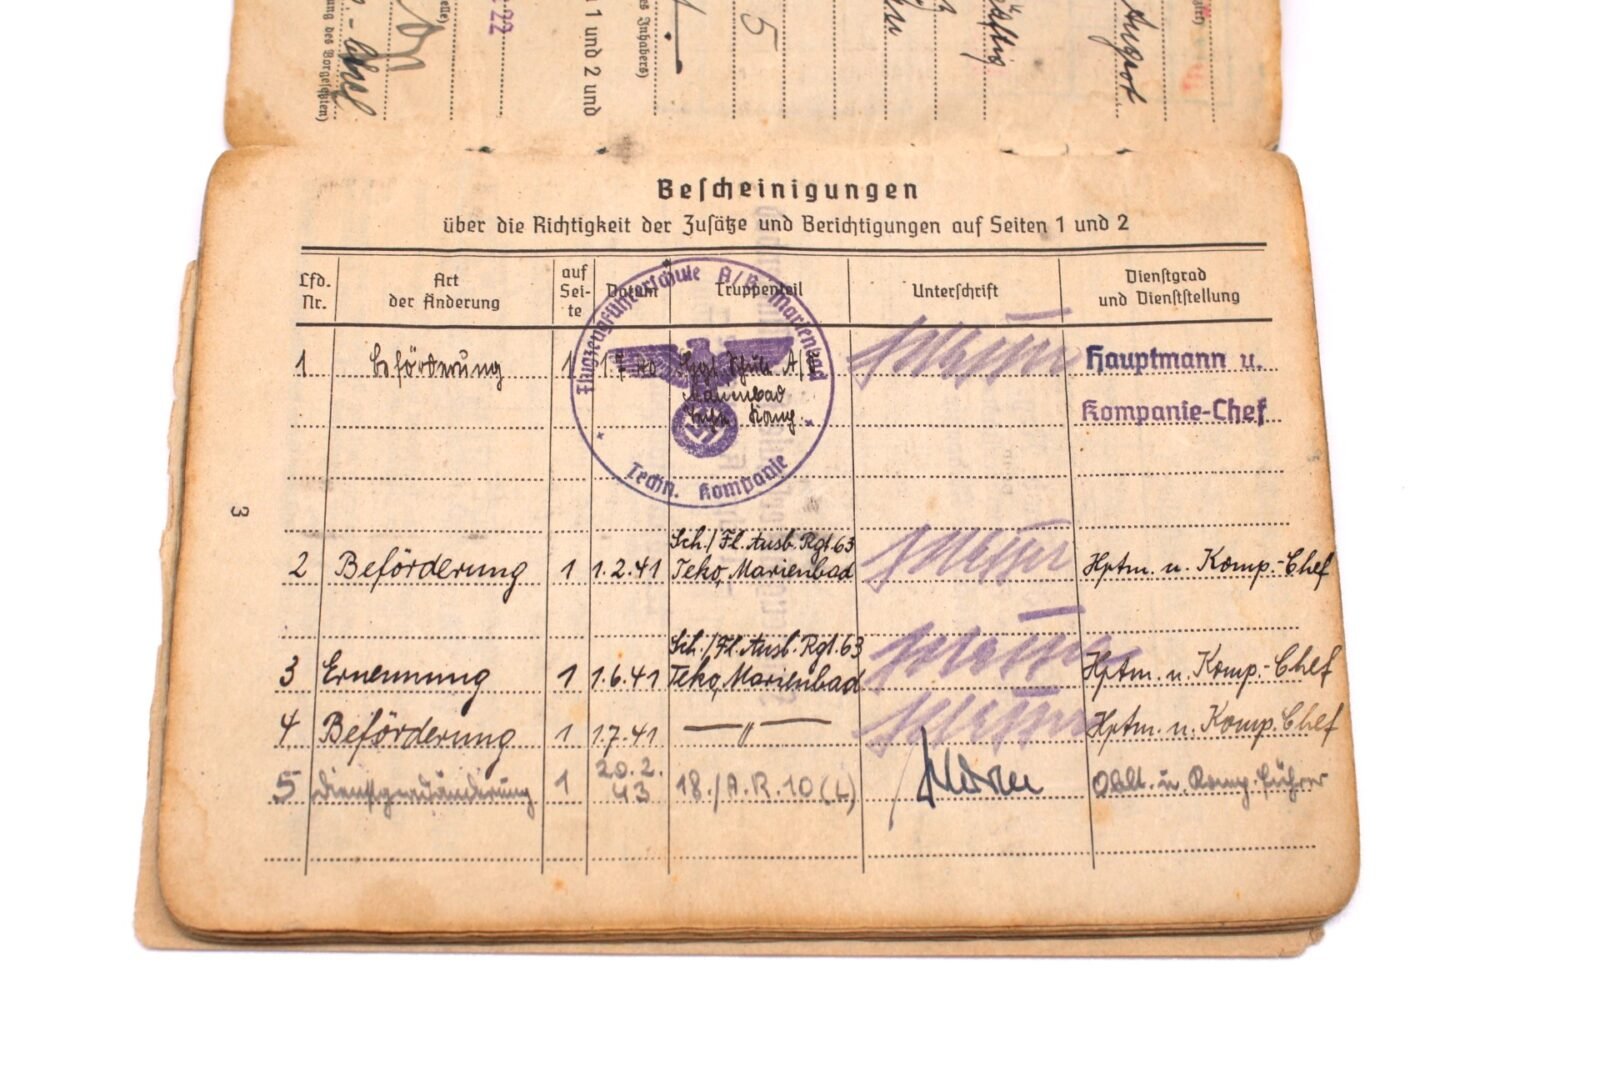 22
1 und 2 und
des Inhabers)
ung des Vorgesetzten)
5
3
Bescheinigungen
über die Richtigkeit der Zusätze und Berichtigungen auf Seiten 1 und 2
Lfd. Nr.
Art der Änderung
auf Sei-te
Datum
Truppenteil
Unterschrift
Dienstgrad und Dienststellung
Flugzeugführerschule A/B Marienbad
Techn. Kompanie
1 Beförderung 1 1.7.40 Schule A/B Hauptmann u.
Marienbad Kompanie-Chef
Komp.
Sch./Fl. Ausb. Rgt. 63
2 Beförderung 1 1.2.41 Teko, Marienbad Hptm. u. Komp.-Chef
Sch./Fl. Ausb. Rgt. 63
3 Ernennung 1 1.6.41 Teko, Marienbad Hptm. u. Komp.-Chef
4 Beförderung 1 1.7.41 — " — Hptm. u. Komp. Chef
5 Dienstgradänderung 1 20.2.43 18./A.R.10(L) Oblt. u. Komp. Führer
3